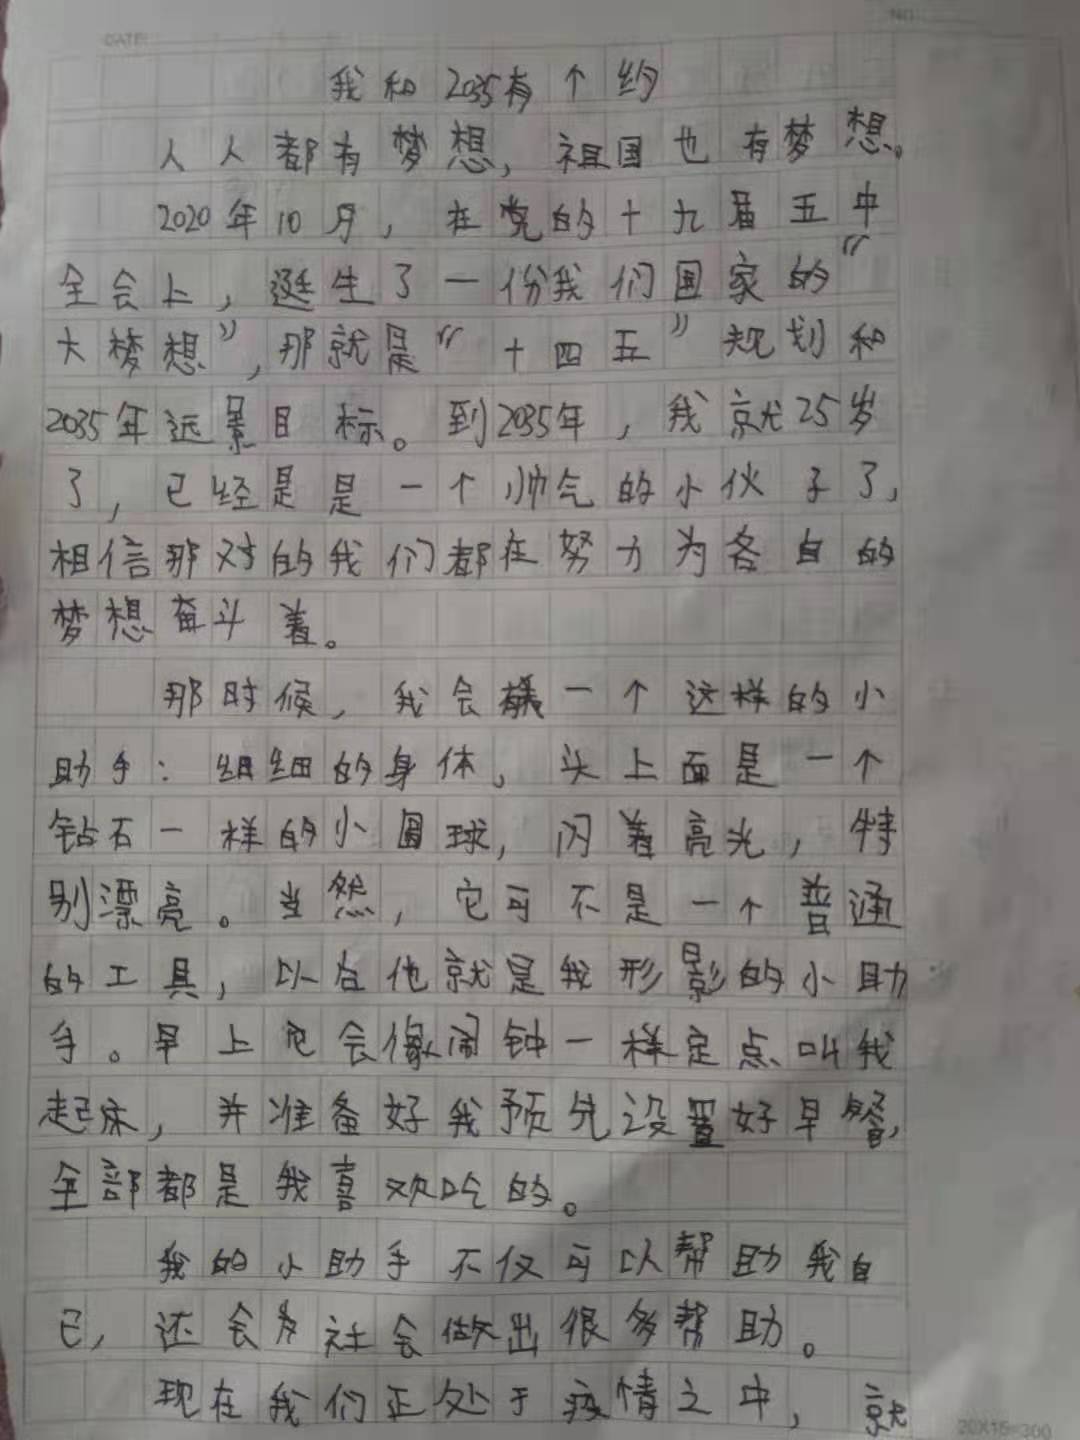 DATE:
NO:
我和2035有个约
人人都有梦想，祖国也有梦想。
2020年10月，在党的十九届五中
全会上，诞生了一份我们国家的“
大梦想”，那就是“十四五”规划和
2035年远景目标。到2035年，我就25岁
了，已经是是一个帅气的小伙子了，
相信那时的我们都在努力为各自的
梦想奋斗着。
那时候，我会有一个这样的小
助手：细细的身体，头上面是一个
钻石一样的小圆球，闪着亮光，特
别漂亮。当然，它可不是一个普通
的工具，以后他就是我形影的小助
手。早上它会像闹钟一样定点叫我
起床，并准备好我预先设置好早餐，
全部都是我喜欢吃的。
我的小助手不仅可以帮助我自
已，还会为社会做出很多帮助。
现在我们正处于疫情之中，就
20X15=300